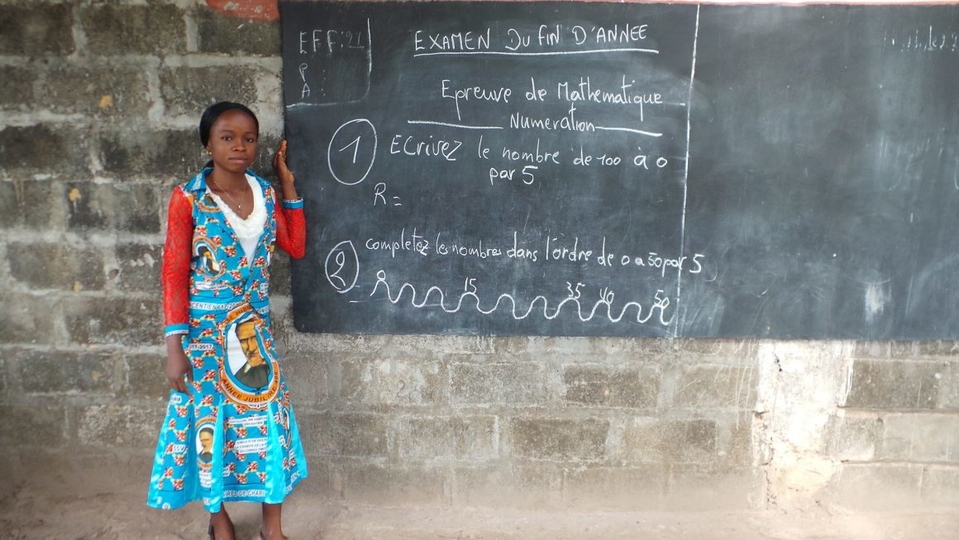 EFF: 21
P
A :
EXAMEN DU FIN D'ANNEE
Epreuve de Mathematique
Numeration
1 ECrivez le nombre de 100 à 0
par 5
R =
2 completez les nombres dans l'ordre de 0 a 50 par 5
0 15 35 40 50
ANNEE JUBILAIRE